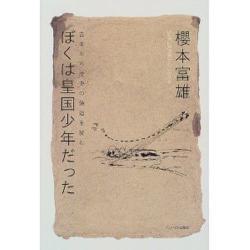 櫻本富雄
ぼくは皇国少年だった
古本から歴史の偽造を読む